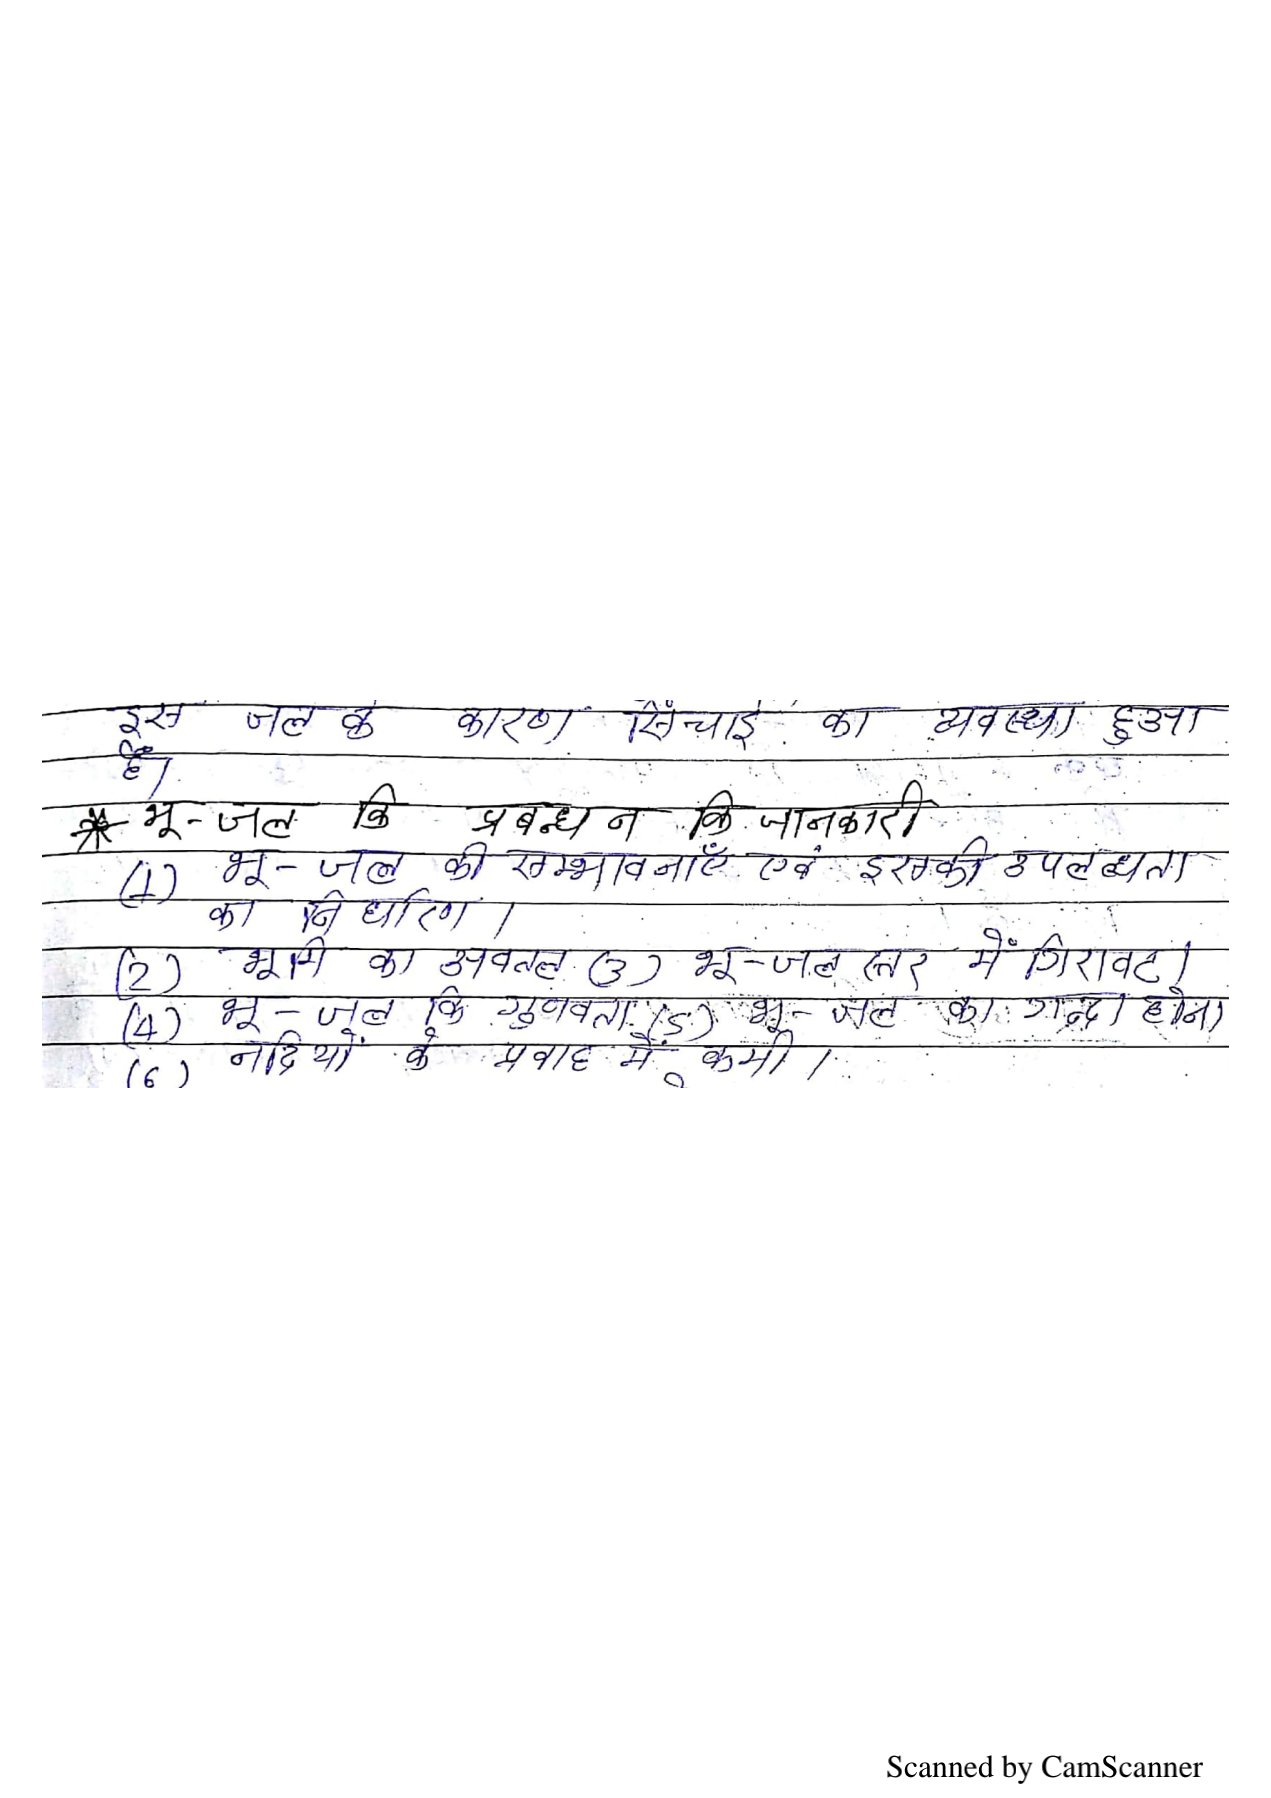 इस जल के कारण सिंचाई का व्यवस्था हुआ
है।
* भू-जल कि प्रबन्धन कि जानकारी
(1) भू-जल की सम्भावनाएँ एवं इसकी उपलब्धता
का निर्धारण।
(2) भूमि का अवतल (3) भू-जल स्तर में गिरावट।
(4) भू-जल कि गुणवता (5) भू-जल का गन्दा होना
(6) नदियों के प्रवाह में कमी।
Scanned by CamScanner